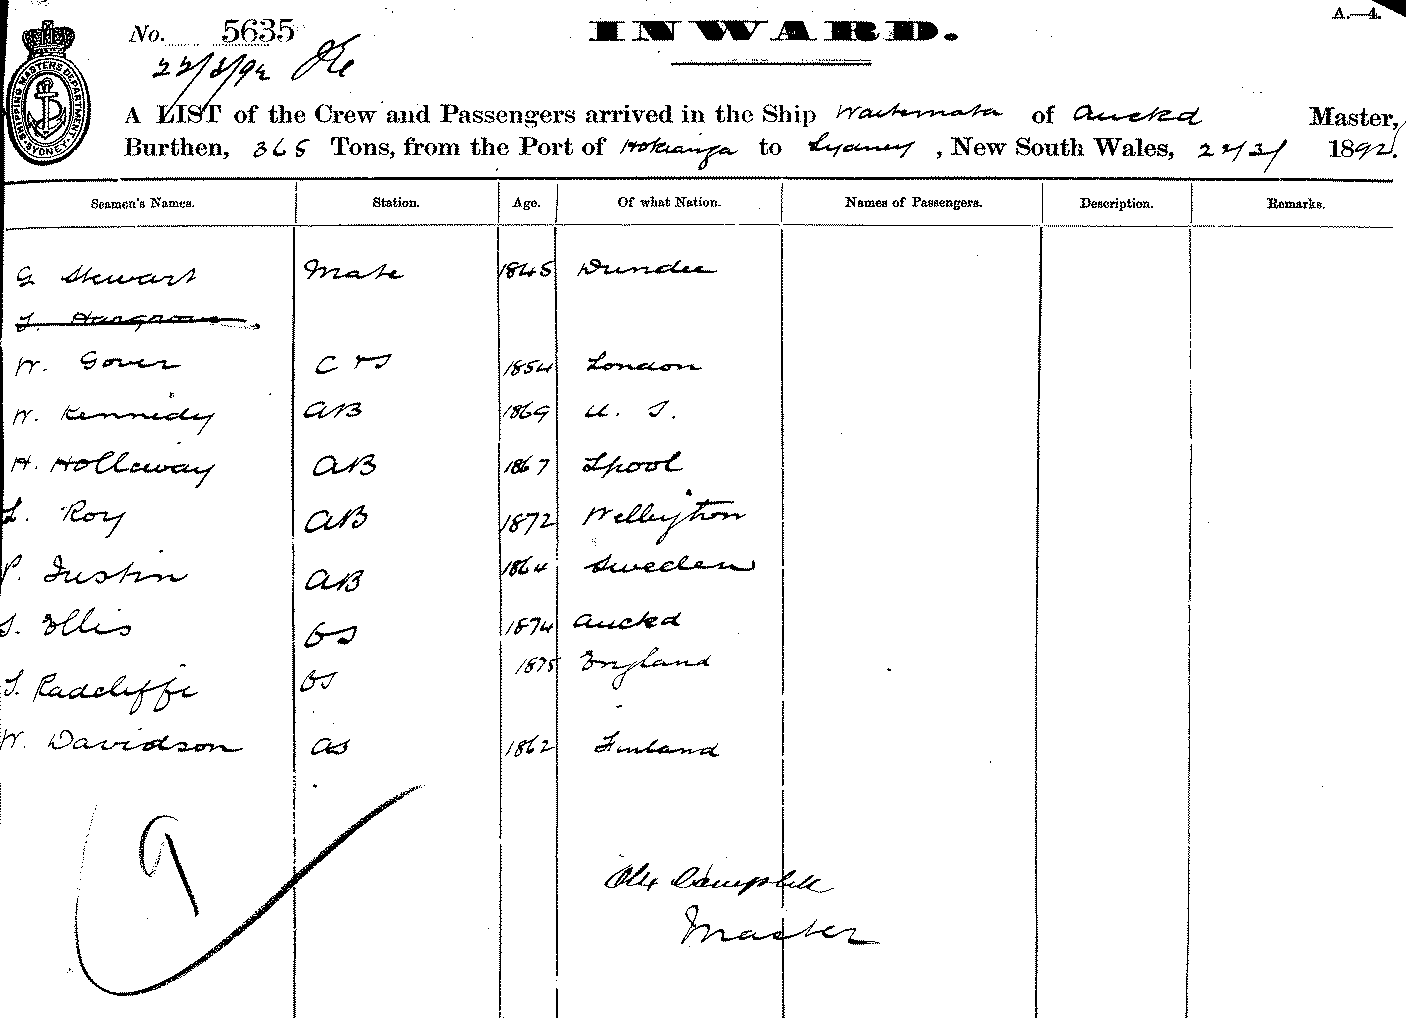 A.—4.
No. 5635
INWARD.
22/3/92
SHIPPING MASTERS DEPARTMENT SYDNEY
A LIST of the Crew and Passengers arrived in the Ship Waitemata of Auckd Master,
Burthen, 365 Tons, from the Port of Hokianga to Sydney, New South Wales, 22/3/ 1892.
Seamen's Names. Station. Age. Of what Nation. Names of Passengers. Description. Remarks.
G Stewart Mate 1845 Dundee
Hargrove
W. Gover C & S 1854 London
W. Kennedy AB 1869 U. S.
H. Hollaway AB 1867 Lpool
L. Roy AB 1872 Wellington
P. Justin AB 1864 Sweden
S. Ellis OS 1874 Auckd
Radcliffe OS 1875 England
W. Davidson AS 1862 Finland
9
Alex Campbell
Master